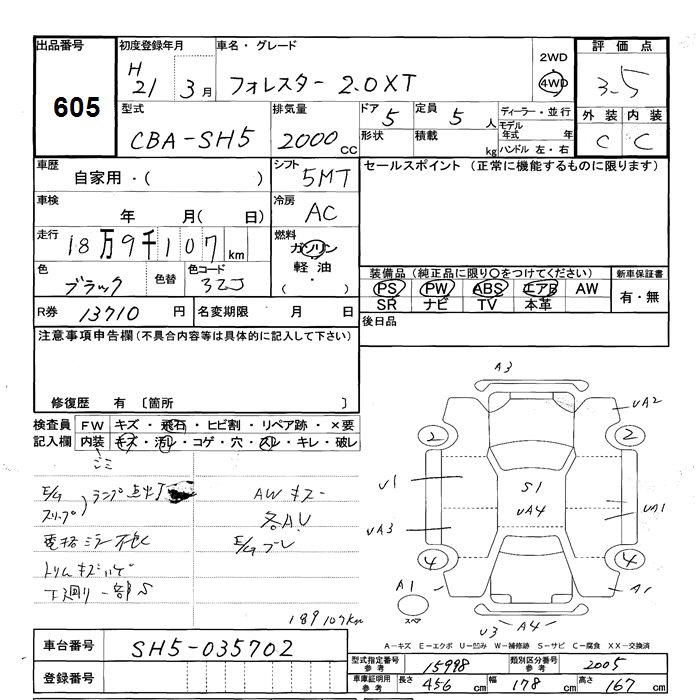 出品番号 初度登録年月 車名・グレード 2WD 評価点
605 H 21 3月 フォレスター 2.0XT 4WD 3.5
型式 排気量 ドア 5 定員 5人 ディーラー・並行 外装 内装
CBA-SH5 2000cc 形状 積載 kg モデル年式 年 C C
ハンドル 左・右
車歴 シフト 5MT セールスポイント (正常に機能するものに限ります)
自家用・( )
車検 冷房 AC
年 月(日)
走行 燃料
18万9千107km ガソリン
軽油
(・)
色 色替 色コード 装備品(純正品に限り○をつけてください) 新車保証書
ブラック 32J PS PW ABS エアB AW 有・無
SR ナビ TV 本革
R券 13710円 名変期限 月 日 後日品
注意事項申告欄(不具合内容等は具体的に記入して下さい)
修復歴 有 〔箇所 〕
検査員 FW キズ・飛石・ヒビ割・リペア跡・×要
記入欄 内装 キズ・汚レ・コゲ・穴・スレ・キレ・破レ
A3
UA2
2 2
U1 S1 UA1
UA3 UA4
4 4
A1 A1
スペア
U3 A4
E/G ランプ点灯
スリップ
AWキズ
各AU
電格ミラー不良
E/Gブレ
下廻り一部S
189107km
A-キズ E-エクボ U-凹み W-補修跡 S-サビ C-腐食 XX-交換済
車台番号 SH5-035702
型式指定番号 参考 15998 類別区分番号 参考 2005
登録番号
車庫証明用 参考 長さ 456cm 幅 178cm 高さ 167cm